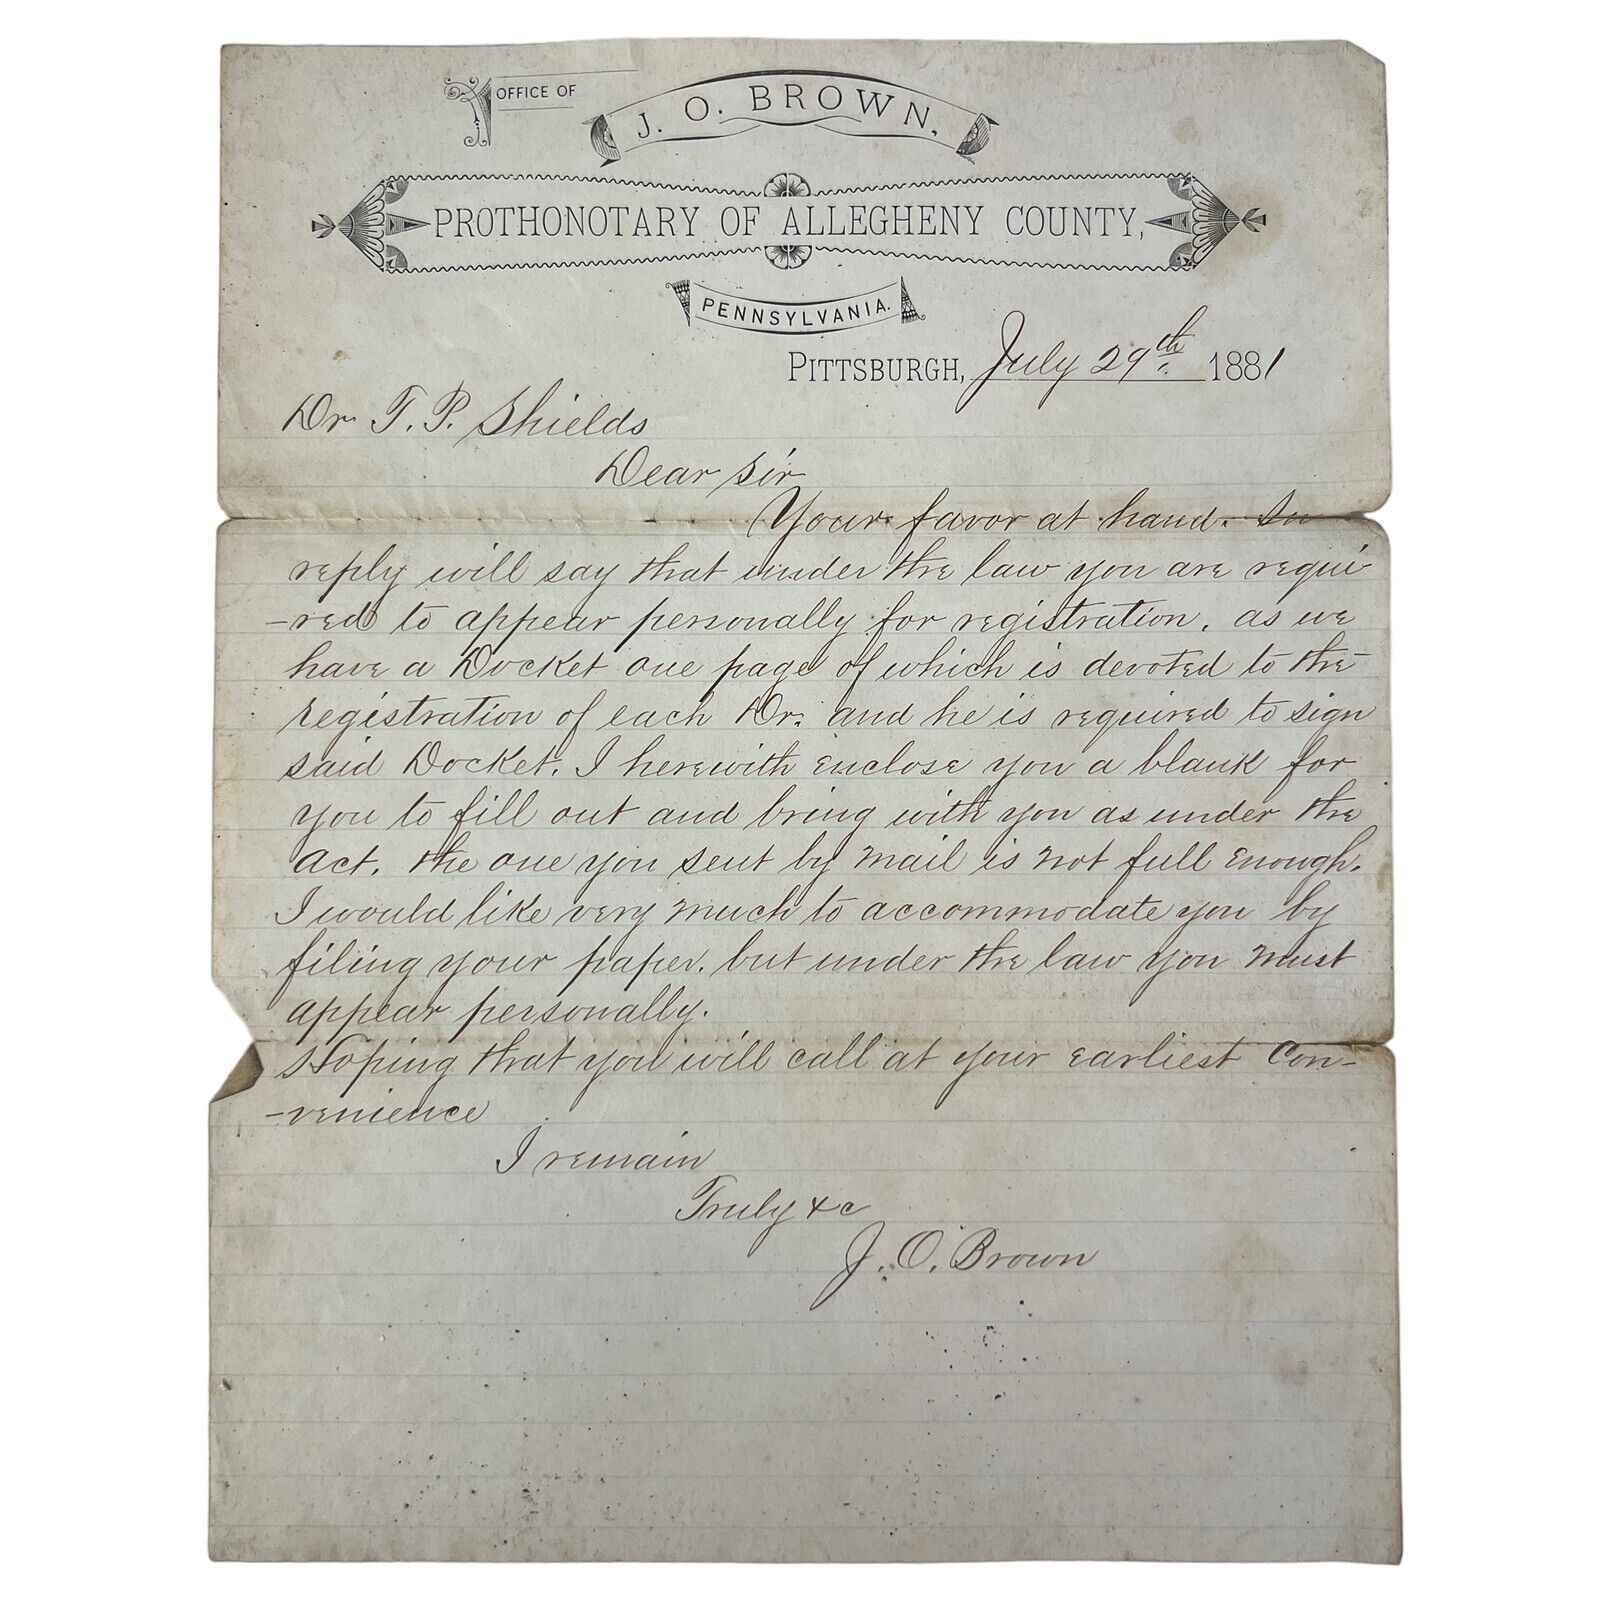 OFFICE OF
J. O. BROWN,
PROTHONOTARY OF ALLEGHENY COUNTY,
PENNSYLVANIA.
PITTSBURGH, July 29th. 1881
Dr. T. P. Shields
Dear Sir
Your favor at hand. In
reply will say that under the law you are requi-
-red to appear personally for registration. as we
have a Docket one page of which is devoted to the
registration of each Dr. and he is required to sign
said Docket. I herewith enclose you a blank for
you to fill out and bring with you as under the
act. the one you sent by mail is not full enough.
I would like very much to accommodate you by
filing your paper. but under the law you must
appear personally.
Hoping that you will call at your earliest Con-
-venience
I remain
Truly &c
J. O. Brown